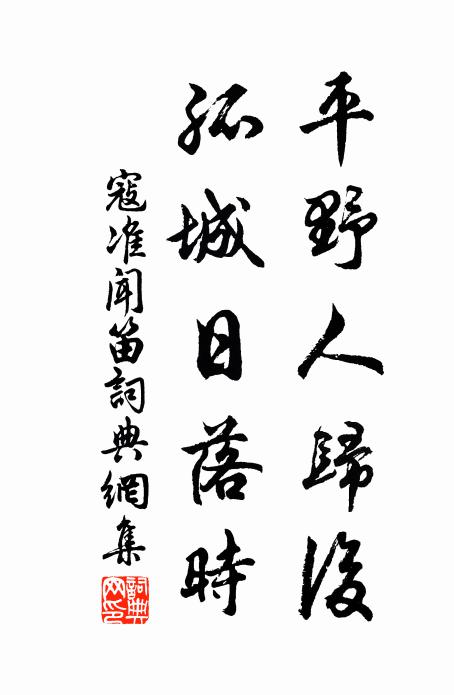 平野人歸後
孤城日落時
寇准聞笛詞典網集
詞典網印